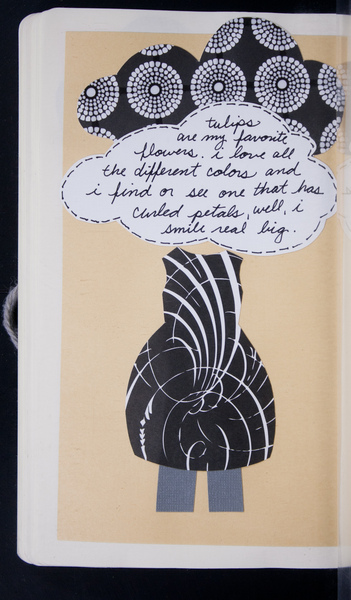 tulips
are my favorite
flowers. i love all
the different colors and
i find or see one that has
curled petals, well, i
smile real big.